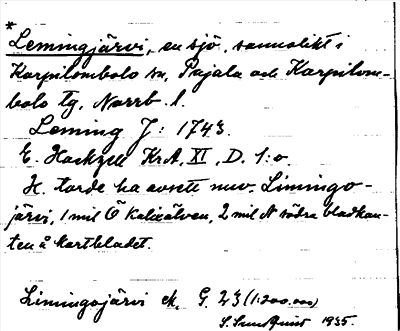 *
Lemingjärvi, en sjö, sannolikt i
Karpilombolo sn, Pajala och Karpilom-
bolo tg, Norrb. l.
Leming J: 1743.
E. Hackzell KrA, XI, D. 1:o
H. torde ha avsett nuv. Limingo-
järvi, 1 mil Ö Kalixälven, 2 mil N södra bladkan-
ten å kartbladet.
Limingojärvi ek. G. 23 (1:200.000)
S. Sundqvist 1935.